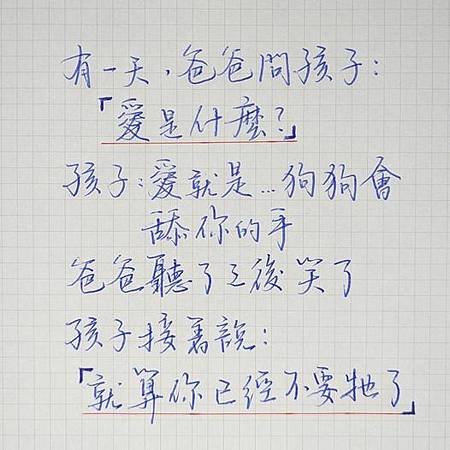 有一天，爸爸問孩子：
「愛是什麼？」
孩子：愛就是…狗狗會
舔你的手
爸爸聽了之後笑了
孩子接著說：
「就算你已經不要牠了」